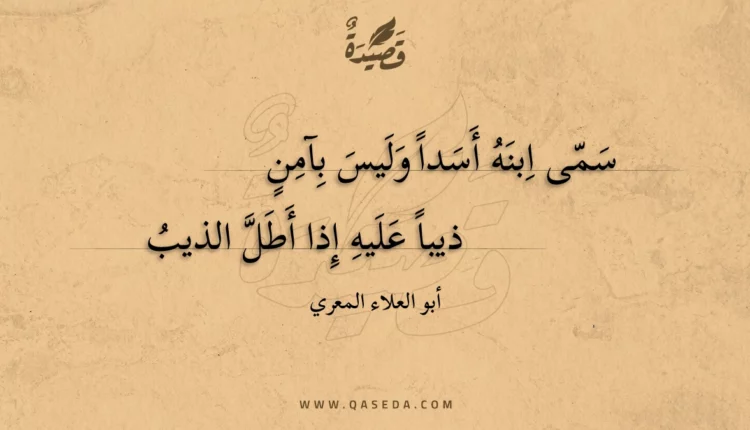 قَصِيْدَةٌ
سَمّى اِبنَهُ أَسَداً وَلَيسَ بِآمِنٍ
ذيباً عَلَيهِ إِذا أَطَلَّ الذيبُ
أبو العلاء المعري
WWW.QASEDA.COM